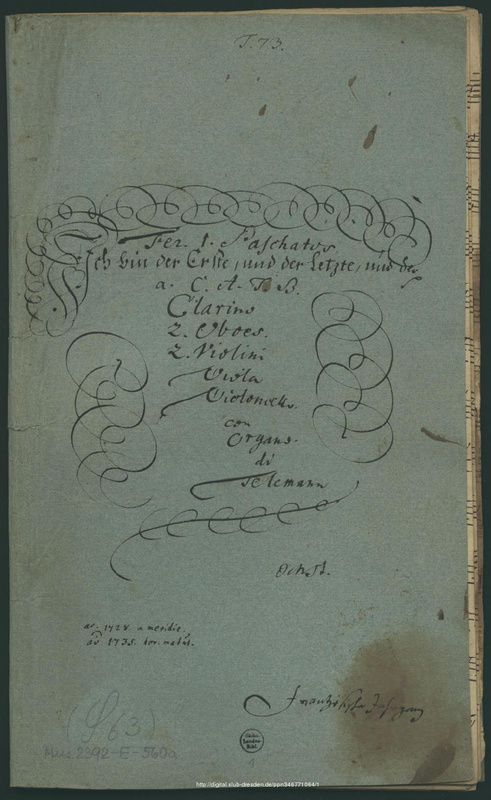 T. 73.
Fer. 1. Paschatos
Ich bin der Erste, und der Letzte, und der
a. C. A. T. B.
Clarino
2. Oboes.
2. Violini
Viola
Violoncello.
con
Organo.
di
Telemann
ao. 1728. a meridie.
ao 1735.
Frantzösischer Jahrgang
(S 63)
Mus. 2392-E-560a
Sächs.
Landes-
Bibl.
1
http://digital.slub-dresden.de/ppn346771064/1